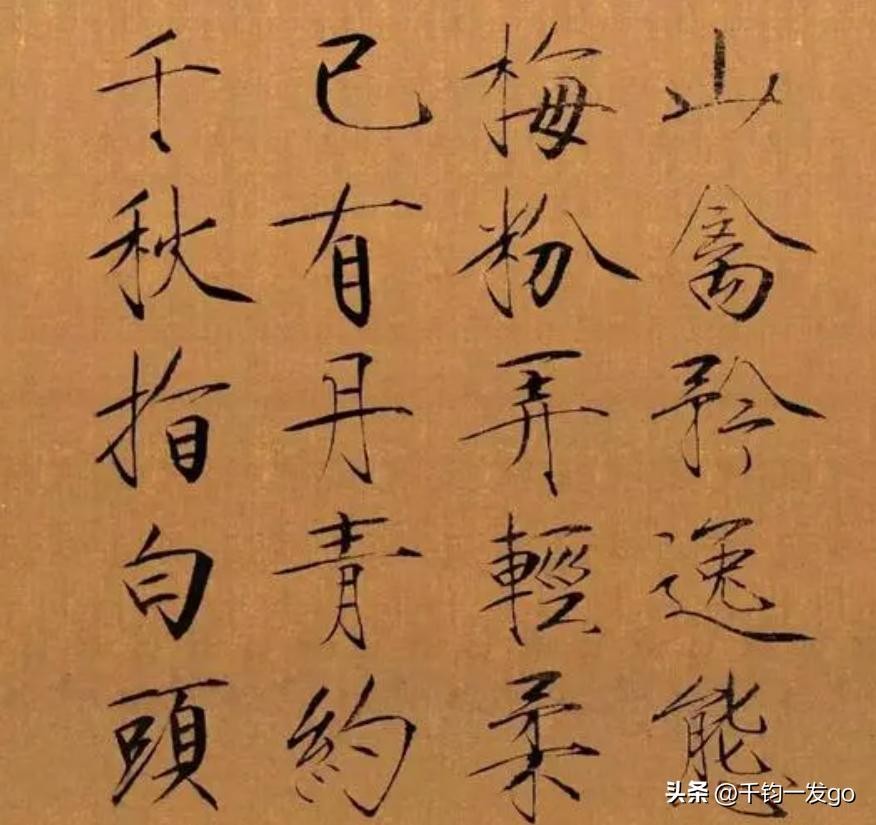 山禽矜逸態
梅粉弄輕柔
已有丹青約
千秋指白頭
头条 @千钧一发go